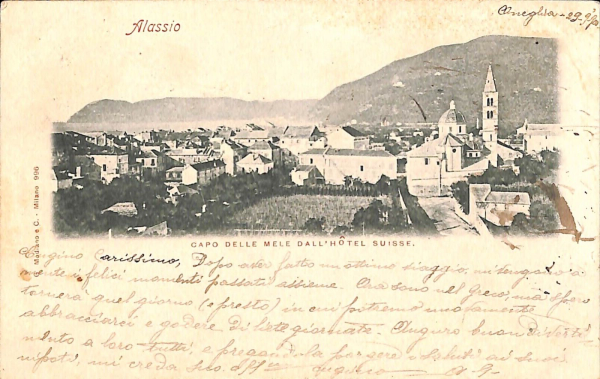 Alassio
Oneglia - 29.
Modiano e C. - Milano 996
CAPO DELLE MELE DALL'HÔTEL SUISSE.
Cugino Carissimo, Dopo aver fatto un ottimo viaggio, mi tengo a
mente i felici momenti passati assieme. Ora sono nel greco, ma spero
tornerà quel giorno (e presto) in cui potremo nuovamente
abbracciarci e godere di liete giornate. Auguro buon diverti
mento a loro tutti, e pregandola porgere i saluti ai suoi
nipoti, mi creda suo aff.mo cugino